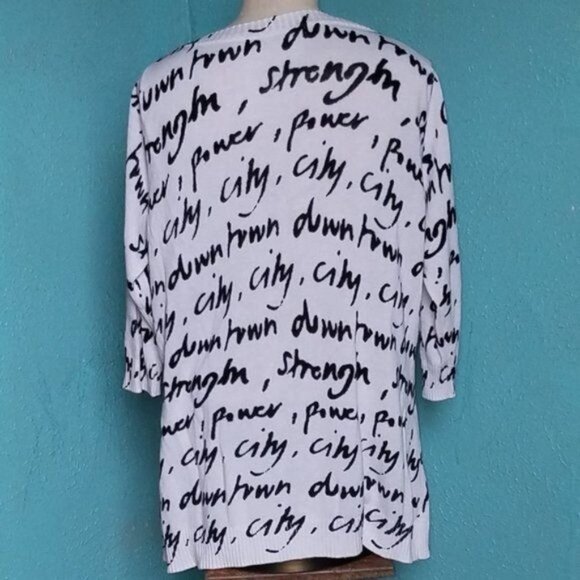 downtown downtown
strength, strength,
power, power, power,
city, city, city, city,
downtown downtown
city, city, city, city,
downtown downtown
strength, strength,
power, power,
city, city, city, city,
downtown
city, city, city, city,